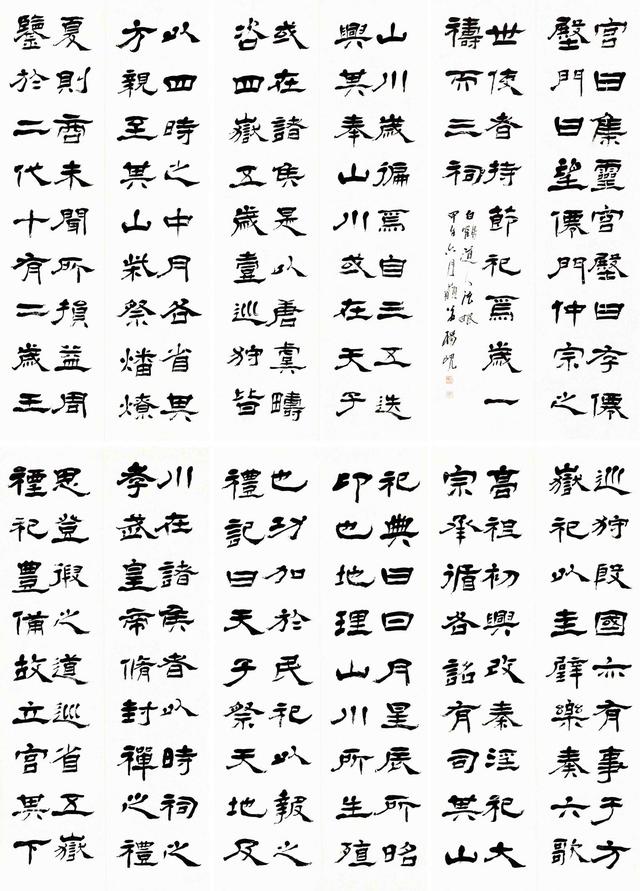 宮曰集靈宮壂曰存僊
壂門曰望僊門仲宗之
世使者持節祀焉歲一
禱而三祠
白鶴道人法眼
甲午六月藐翁楊峴
山川歲徧焉自三五迭
興其奉山川或在天子
或在諸侯是以唐虞疇
咨四嶽五歲壹巡狩皆
以四時之中月各省其
方親至其山柴祭燔燎
夏則商未聞所損益周
鑒於二代十有二歲王
巡狩殷國亦有事于方
嶽祀以圭璧樂奏六歌
高祖初興改秦淫祀大
宗承循各詔有司其山
祀典曰日月星辰所昭
卬也地理山川所生殖
也功加於民祀以報之
禮記曰天子祭天地及
川在諸侯者以時祠之
孝武皇帝脩封禪之禮
思登徦之道巡省五嶽
禋祀豐備故立宮其下